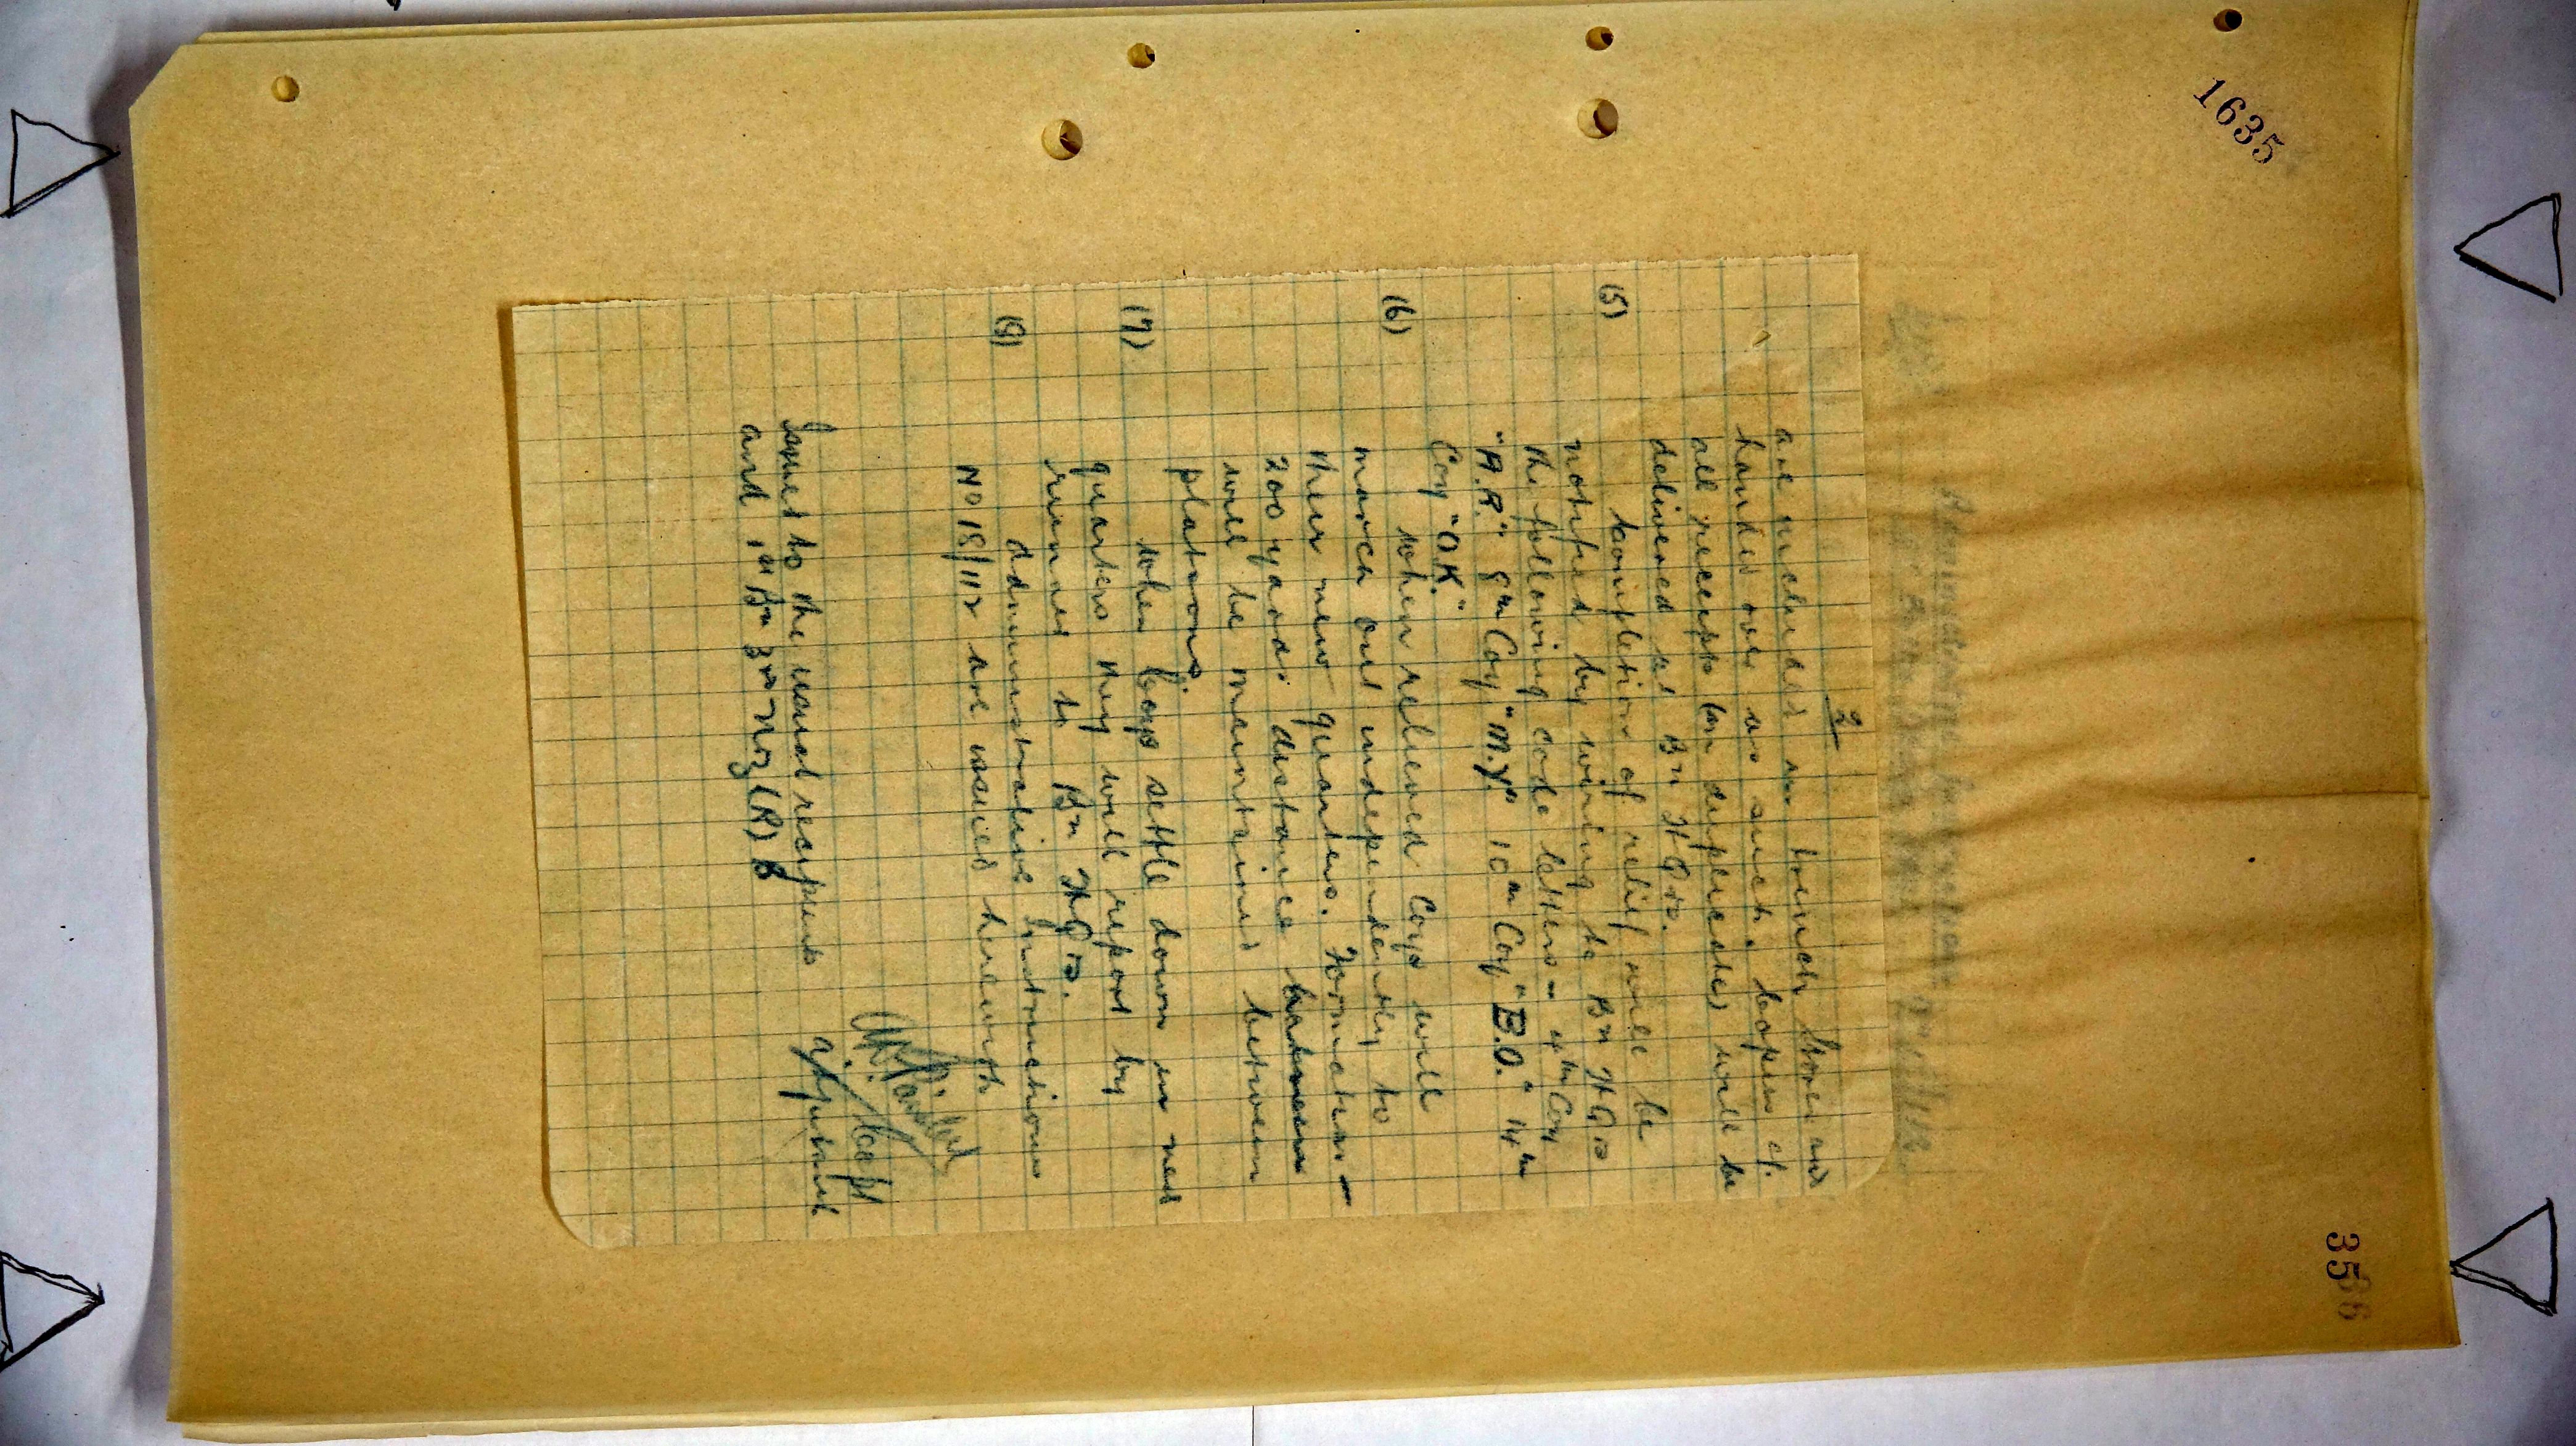 1635
3586
2
are included in trench stores and
handed over as such. Copies of
all receipts (in duplicate) will be
delivered at Bn HQrs.
(5) Completion of relief will be
notified by wiring to Bn HQrs
the following code letters - 4th Coy
"A.R." 8th Coy "M.Y." 10th Coy "B.O." 14th
Coy "O.K."
(6) When relieved Coys will
march out independently to
their new quarters. Formation -
200 yards distance between
will be maintained between
platoons.
(7) When Coys settle down in new
quarters they will report by
runner to Bn HQrs.
(8) Administrative Instructions
No 18/112 are issued herewith
Capt
Adjutant
Issued to the usual recipients
and 1st Bn 3rd NZ (R) B